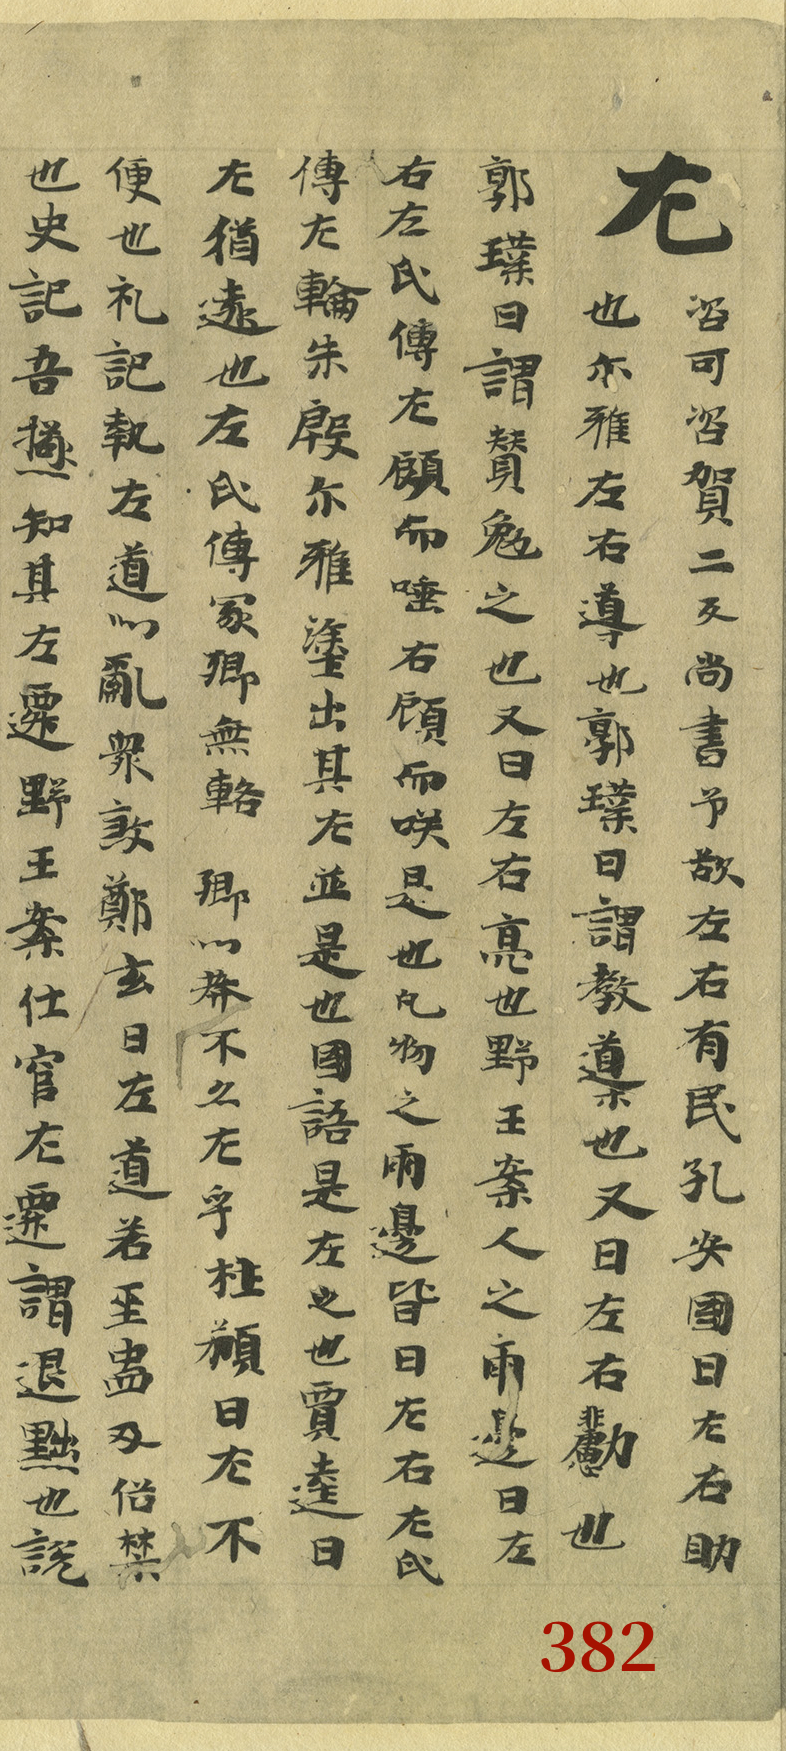 左 咨可咨賀二反尚書予欲左右有民孔安國曰左右助
也尓雅左右導也郭璞曰謂教導也又曰左右勴也
郭璞曰謂賛勉之也又曰左右亮也野王案人之兩邊曰左
右左氏傳左顧而唾右顧而咲是也凡物之兩邊皆曰左右左氏
傳左輪朱殷尓雅塗出其左並是也國語是左之也賈逵曰
左猶遠也左氏傳冢卿無輅 卿以葬不久左乎杜預曰左不
便也礼記執左道以亂衆敦鄭玄曰左道若巫蠱及俗禁
也史記吾極知其左遷野王案仕官左遷謂退黜也説
382